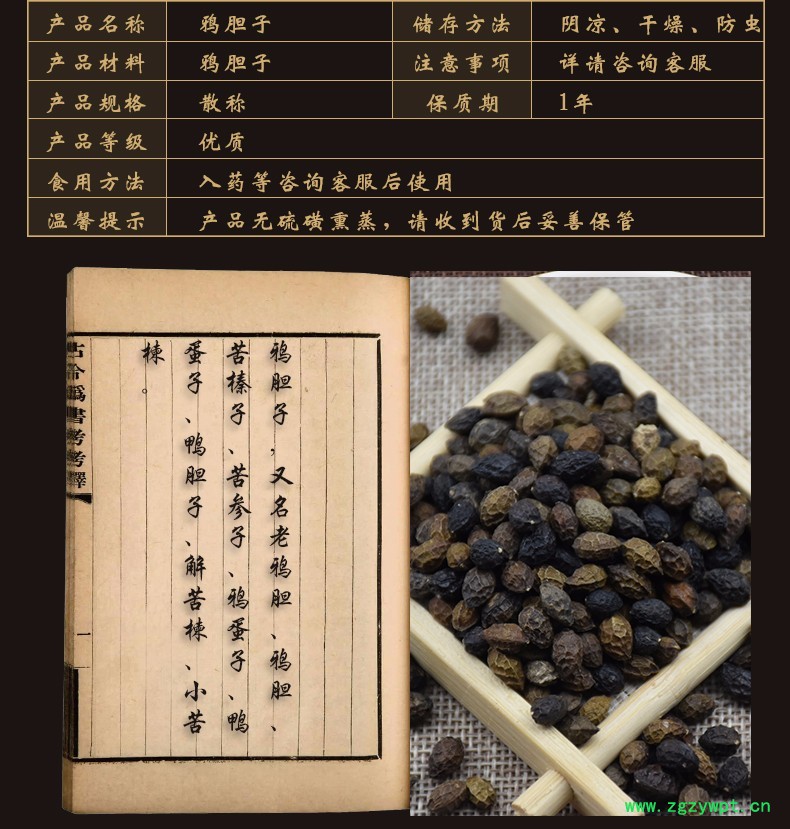 产品名称 鸦胆子 储存方法 阴凉、干燥、防虫
产品材料 鸦胆子 注意事项 详请咨询客服
产品规格 散称 保质期 1年
产品等级 优质
食用方法 入药等咨询客服后使用
温馨提示 产品无硫磺熏蒸，请收到货后妥善保管
鸦胆子，又名老鸦胆、鸦胆、
苦榛子、苦参子、鸦蛋子、鸭
蛋子、鸭胆子、解苦楝、小苦
楝。
古今偽書考考釋
一
www.zgzywpt.cn